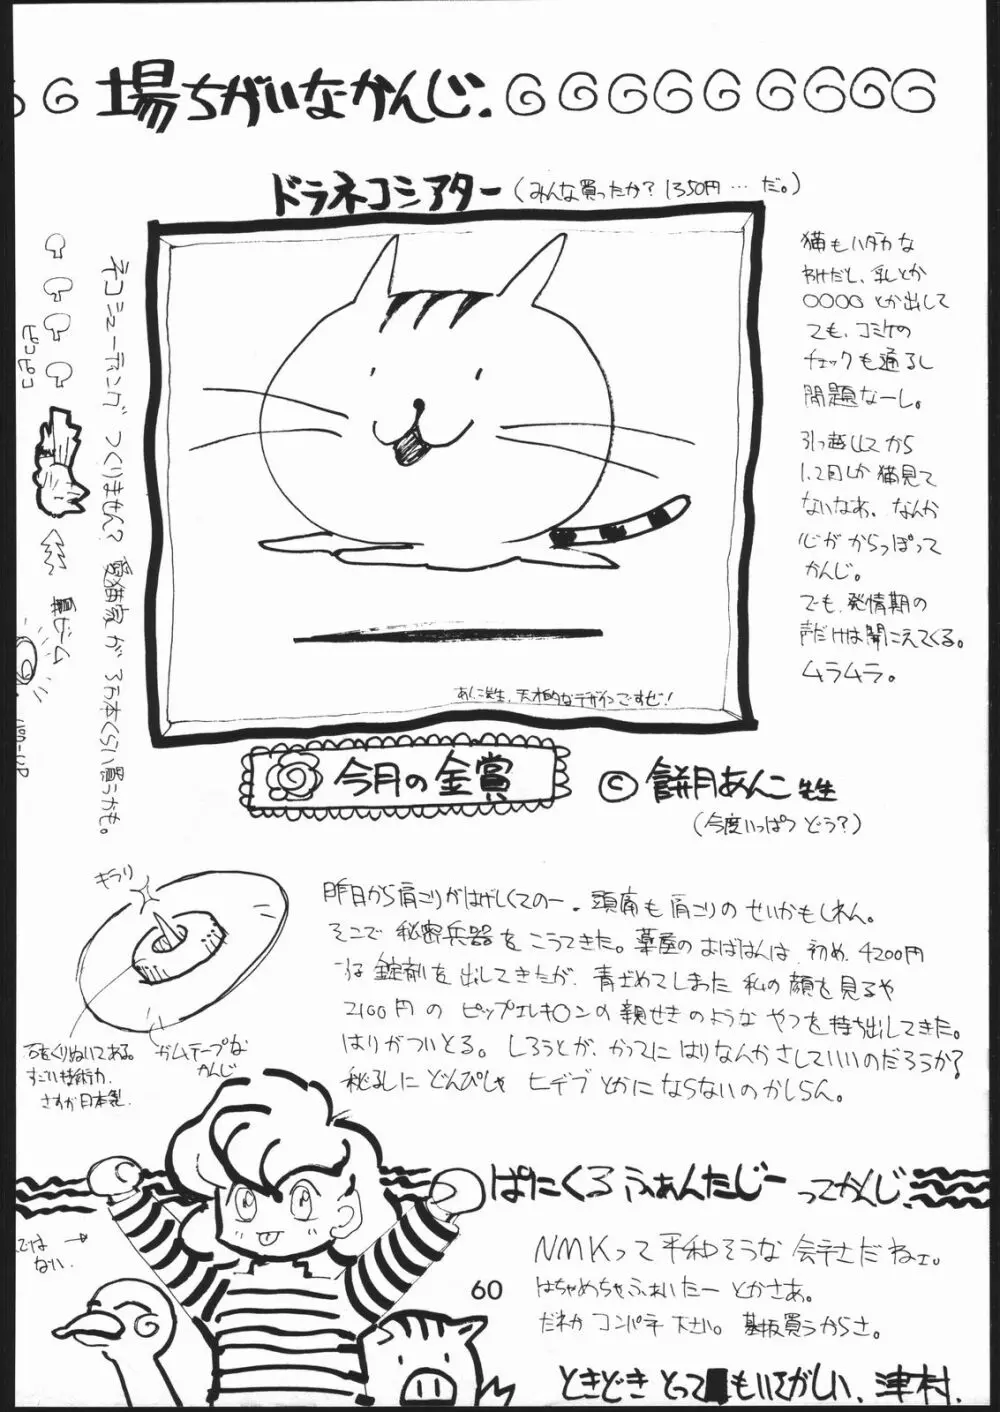 場ちがいなかんじ.
ドラネコシアター(みんな買ったか? 1350円…だ。)
猫もハダカな
わけだし、乳とか
○○○○とか出して
ても、コミケの
チェックも通るし
問題なーし。
引っ越ししてから
1、2回しか猫見て
ないなあ、なんか
心が からっぽって
かんじ。
でも、発情期の
声だけは聞こえてくる。
ムラムラ。
ネコシューティング つくりません? 愛猫家が 3万本くらい買うかも。
ピコピコ
ビーム
1UP
あんこ先生、天才的なデザインですぜ!
今月の金賞
© 餅月あんこ先生
(今度いっぱつ どう?)
キラリ
石をくりぬいてある。
すごい技術力.
さすが日本製.
ガムテープな
かんじ
昨日から肩こりがはげしくてのー. 頭痛も肩こりのせいかもしれん。
そこで秘密兵器をこうてきた。薬屋のおばはんは、初め、4200円
錠剤を出してきたが、青ざめてしまった私の顔を見るや
2100円の ピップエレキ○ンの親せきのような やつを持ち出してきた。
はりがついとる。しろうとが、かってにはりなんかさしていいのだろうか?
秘孔に どんぴしゃ ヒデブとかにならないのかしらん。
ぱにくろふぁんたじー ってかんじ.
ではない.
NMKって平和そうな会社だねェ。
はちゃめちゃふぁいたー とかさあ。
だれか コンパチ下さい。基板買うからさ。
60
ときどき とっても いてがしい、津村.